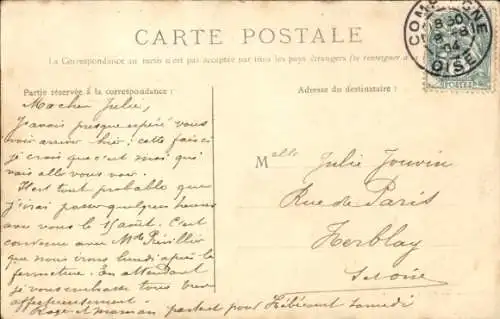 CARTE POSTALE
La Correspondance au recto n'est pas acceptée par tous les pays étrangers (Se renseigner à
COMPIEGNE
8 50
8 -8
04
OISE
POSTES
Partie réservée à la correspondance :
Adresse du destinataire :
Ma chère Julie,
J'avais presque espéré vous
voir arriver hier ; cette fois ci
je crois que c'est moi qui
vais aller vous voir.
Il est tout probable que
j'irai passer quelques heures
avec vous le 15 août. C'est
convenu avec Mde
que nous irons lundi après la
fermeture. En attendant
je vous embrasse tous bien
affectueusement.
Roger et maman partent pour Héricourt samedi
Melle Julie Jouvin
Rue de Paris
Herblay
S et Oise